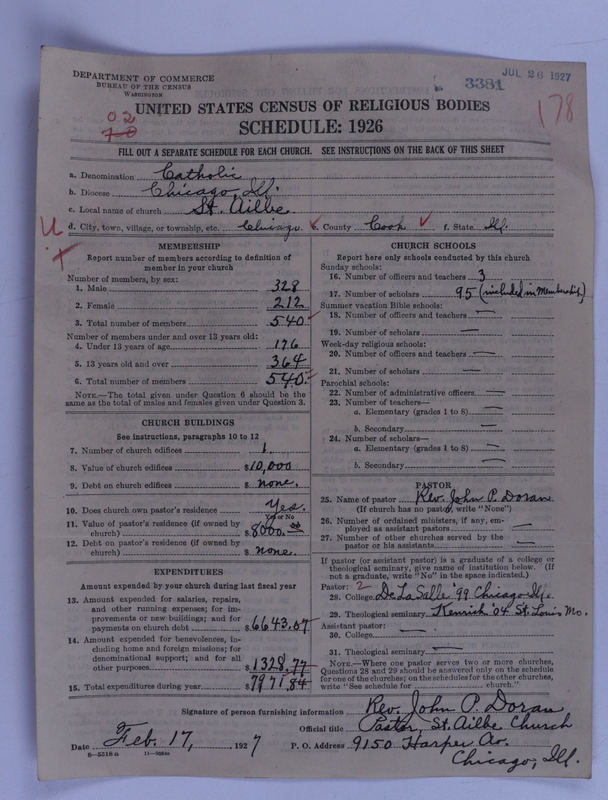 DEPARTMENT OF COMMERCE
BUREAU OF THE CENSUS
WASHINGTON
3381
JUL 26 1927
178
02
UNITED STATES CENSUS OF RELIGIOUS BODIES
SCHEDULE: 1926
FILL OUT A SEPARATE SCHEDULE FOR EACH CHURCH. SEE INSTRUCTIONS ON THE BACK OF THIS SHEET
a. Denomination Catholic
b. Diocese Chicago, Ill.
c. Local name of church St. Ailbe
d. City, town, village, or township, etc. Chicago e. County Cook f. State Ill.
MEMBERSHIP
Report number of members according to definition of
member in your church
Number of members, by sex:
1. Male 328
2. Female 212
3. Total number of members 540
Number of members under and over 13 years old:
4. Under 13 years of age 176
5. 13 years old and over 364
6. Total number of members 540
NOTE.—The total given under Question 6 should be
same as the total of males and females given under Question 3.
CHURCH BUILDINGS
See instructions, paragraphs 10 to 12
7. Number of church edifices 1
8. Value of church edifices $10,000
9. Debt on church edifices $ none.
10. Does church own pastor's residence? Yes.
Yes or No
11. Value of pastor's residence (if owned by
church) $8000.00
12. Debt on pastor's residence (if owned by
church) $ none.
EXPENDITURES
Amount expended by your church during last fiscal year
13. Amount expended for salaries, repairs,
and other running expenses; for im-
provements or new buildings; and for
payments on church debt $6643.07
14. Amount expended for benevolences, in-
cluding home and foreign missions; for
denominational support; and for all
other purposes $1328.77
15. Total expenditures during year $7971.84
CHURCH SCHOOLS
Report here only schools conducted by this church
Sunday schools:
16. Number of officers and teachers 3
17. Number of scholars 95 (included in Membership)
Summer vacation Bible schools:
18. Number of officers and teachers —
19. Number of scholars —
Week-day religious schools:
20. Number of officers and teachers —
21. Number of scholars —
Parochial schools:
22. Number of administrative officers —
23. Number of teachers—
a. Elementary (grades 1 to 8) —
b. Secondary —
24. Number of scholars—
a. Elementary (grades 1 to 8) —
b. Secondary —
PASTOR
25. Name of pastor Rev. John P. Doran
(If church has no pastor, write "None")
26. Number of ordained ministers, if any, em-
ployed as assistant pastors —
27. Number of other churches served by the
pastor or his assistants —
If pastor (or assistant pastor) is a graduate of a college or
theological seminary, give name of institution below. (If
not a graduate, write "No" in the space indicated.)
Pastor: 2
28. College De La Salle '99 Chicago Ill.
29. Theological seminary Kenrick '04 St. Louis Mo.
Assistant pastor:
30. College —
31. Theological seminary —
NOTE.—Where one pastor serves two or more churches,
Questions 28 and 29 should be answered only on the schedule
for one of the churches; on the schedules for the other churches,
write "See schedule for church."
Signature of person furnishing information Rev. John P. Doran
Official title Pastor, St. Ailbe Church
Date Feb. 17, 1927 P. O. Address 9150 Harper Av.
Chicago, Ill.
8—5518 a